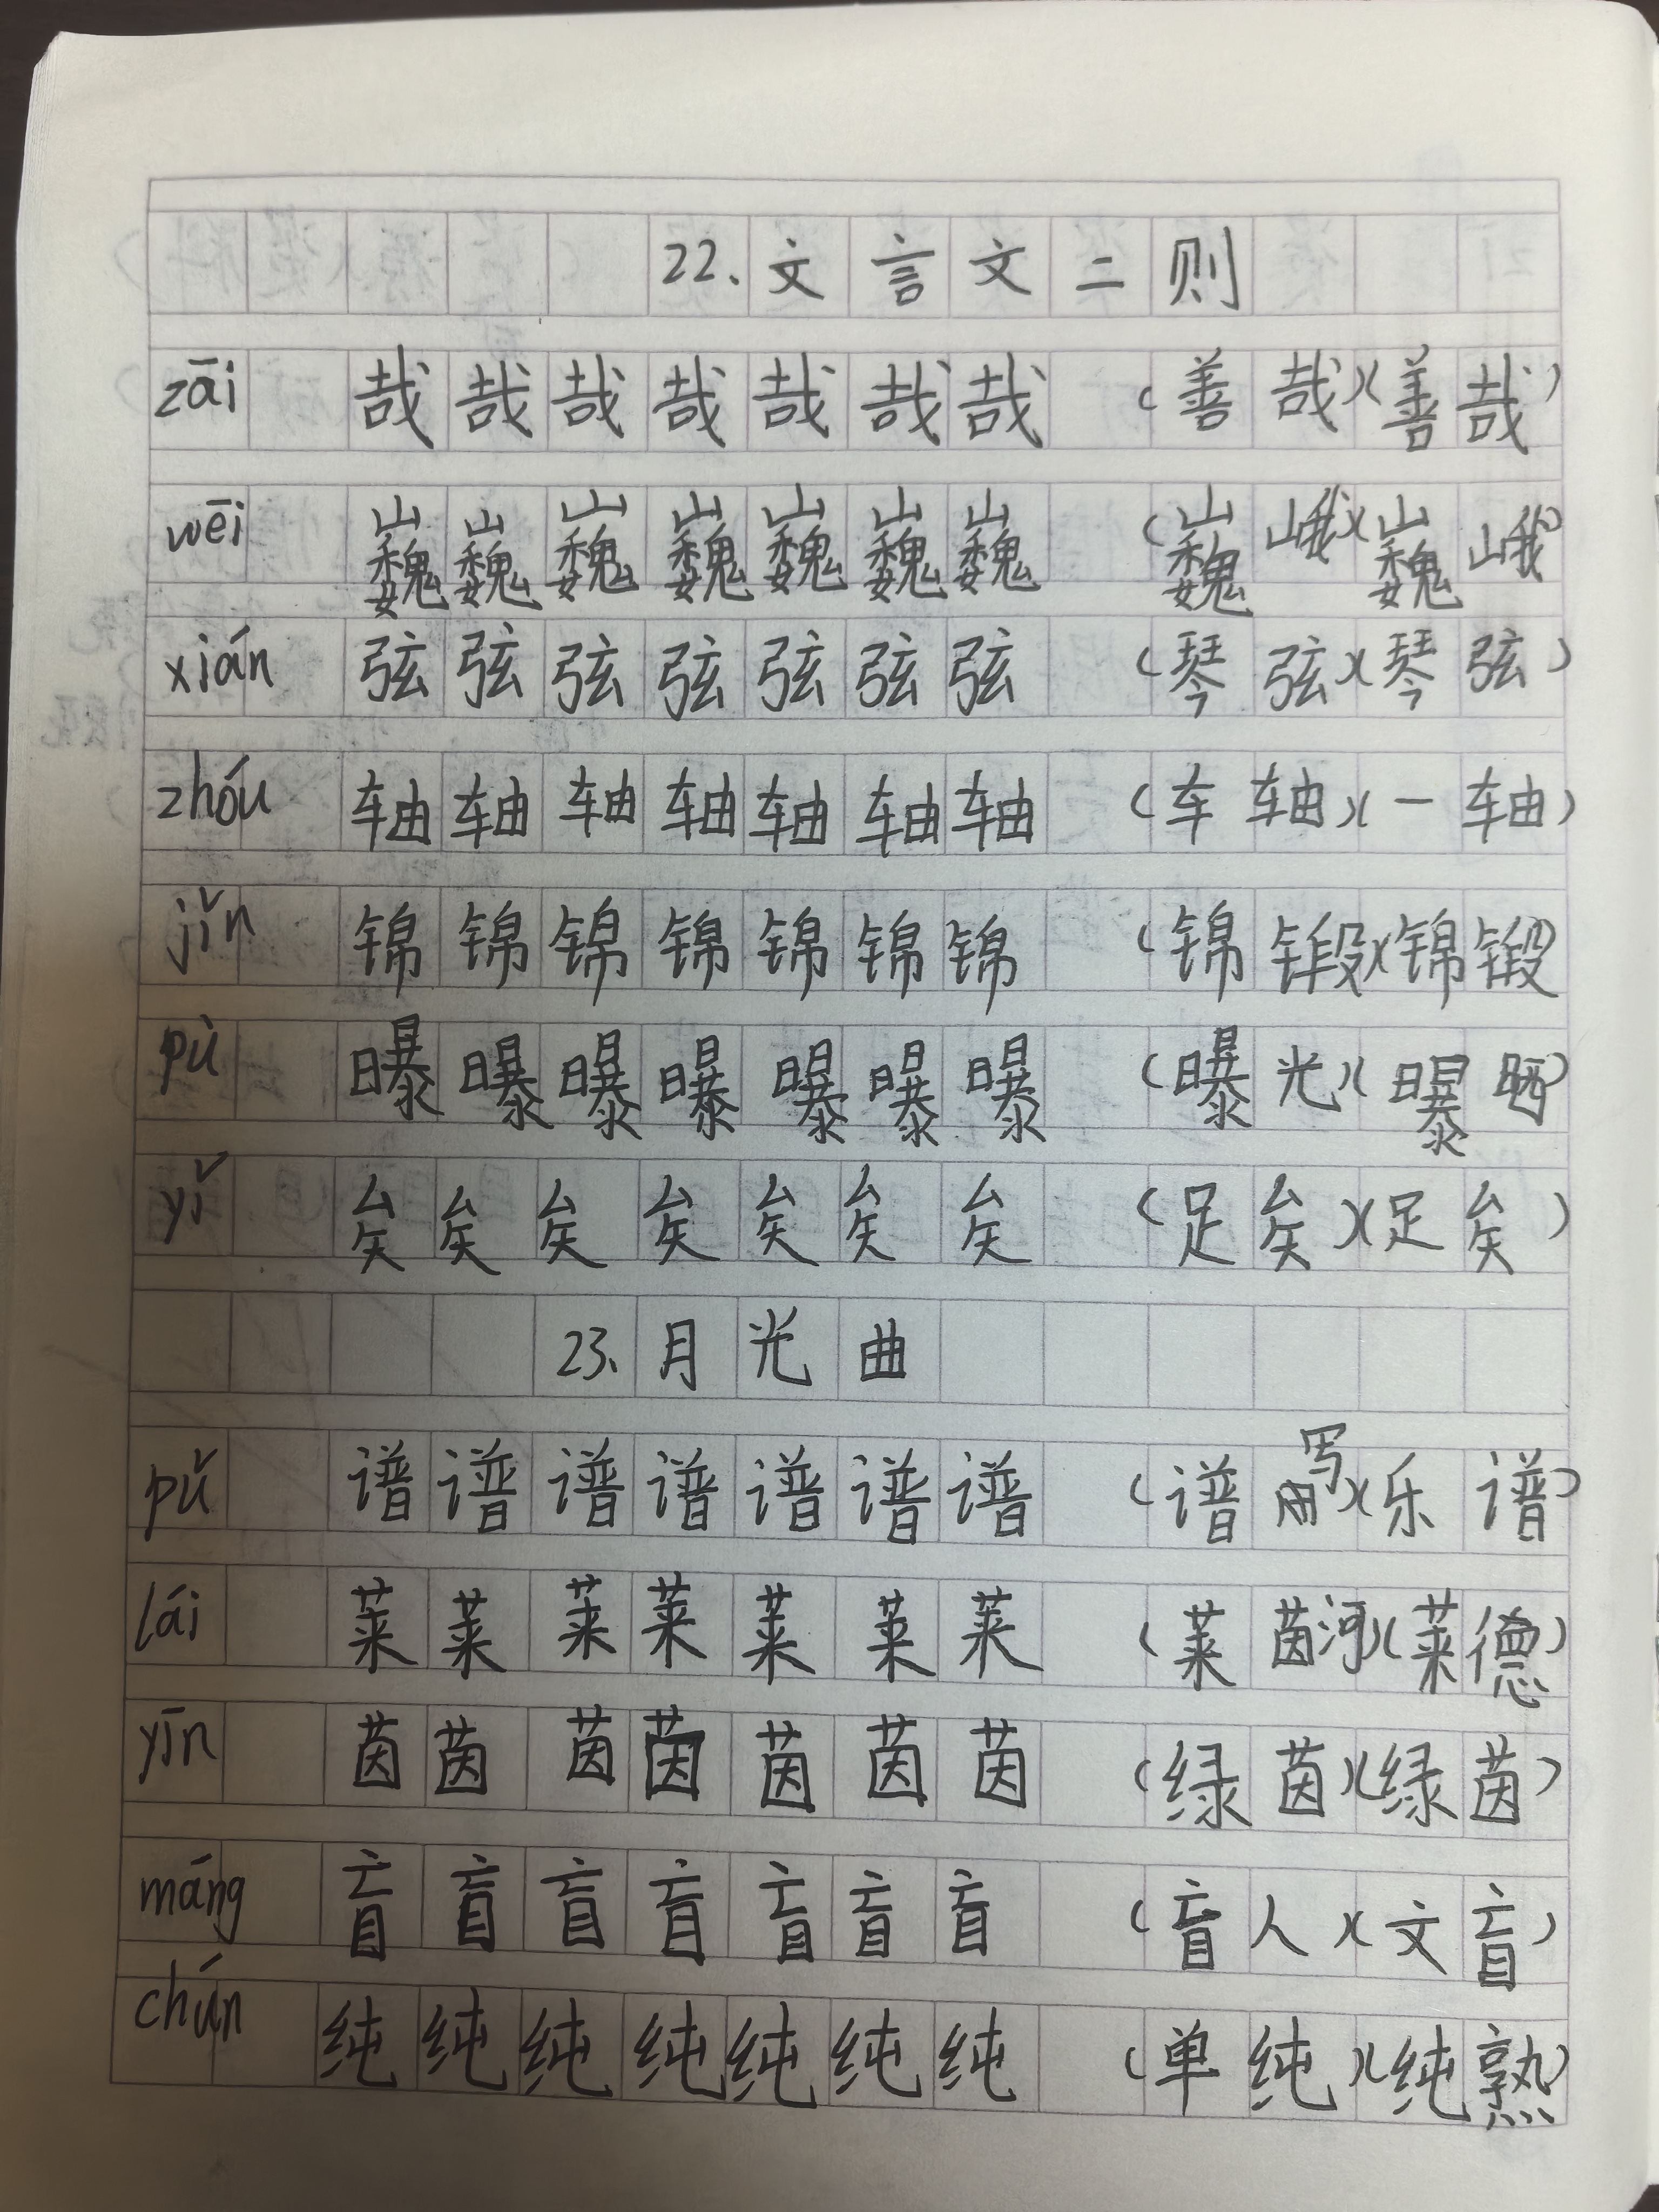 22、文言文二则
zāi 哉哉哉哉哉哉哉 (善哉)(善哉)
wēi 巍巍巍巍巍巍巍 (巍峨)(巍峨)
xián 弦弦弦弦弦弦弦 (琴弦)(琴弦)
zhóu 轴轴轴轴轴轴轴 (车轴)(一轴)
jǐn 锦锦锦锦锦锦锦 (锦锻)(锦锻)
pù 曝曝曝曝曝曝曝 (曝光)(曝晒)
yǐ 矣矣矣矣矣矣矣 (足矣)(足矣)
23、月光曲
pǔ 谱谱谱谱谱谱谱 (谱写)(乐谱)
lái 莱莱莱莱莱莱莱 (莱茵河)(莱德)
yīn 茵茵茵茵茵茵茵 (绿茵)(绿茵)
máng 盲盲盲盲盲盲盲 (盲人)(文盲)
chún 纯纯纯纯纯纯纯 (单纯)(纯熟)